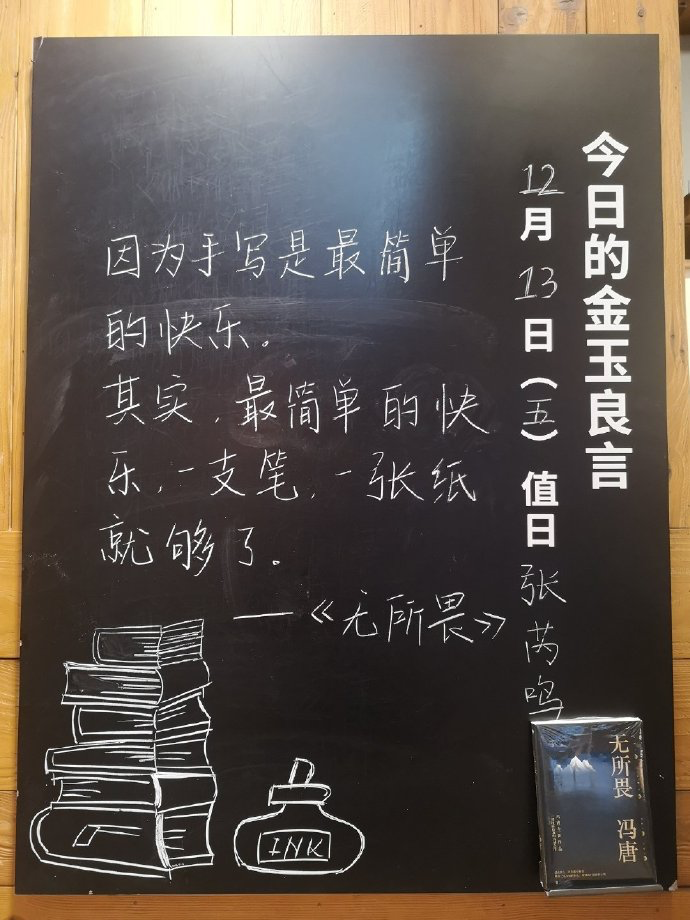 今日的金玉良言
12月13日（五）值日张芮鸣
因为手写是最简单
的快乐。
其实，最简单的快
乐，一支笔，一张纸
就够了。
——《无所畏》
INK
无所畏 冯唐